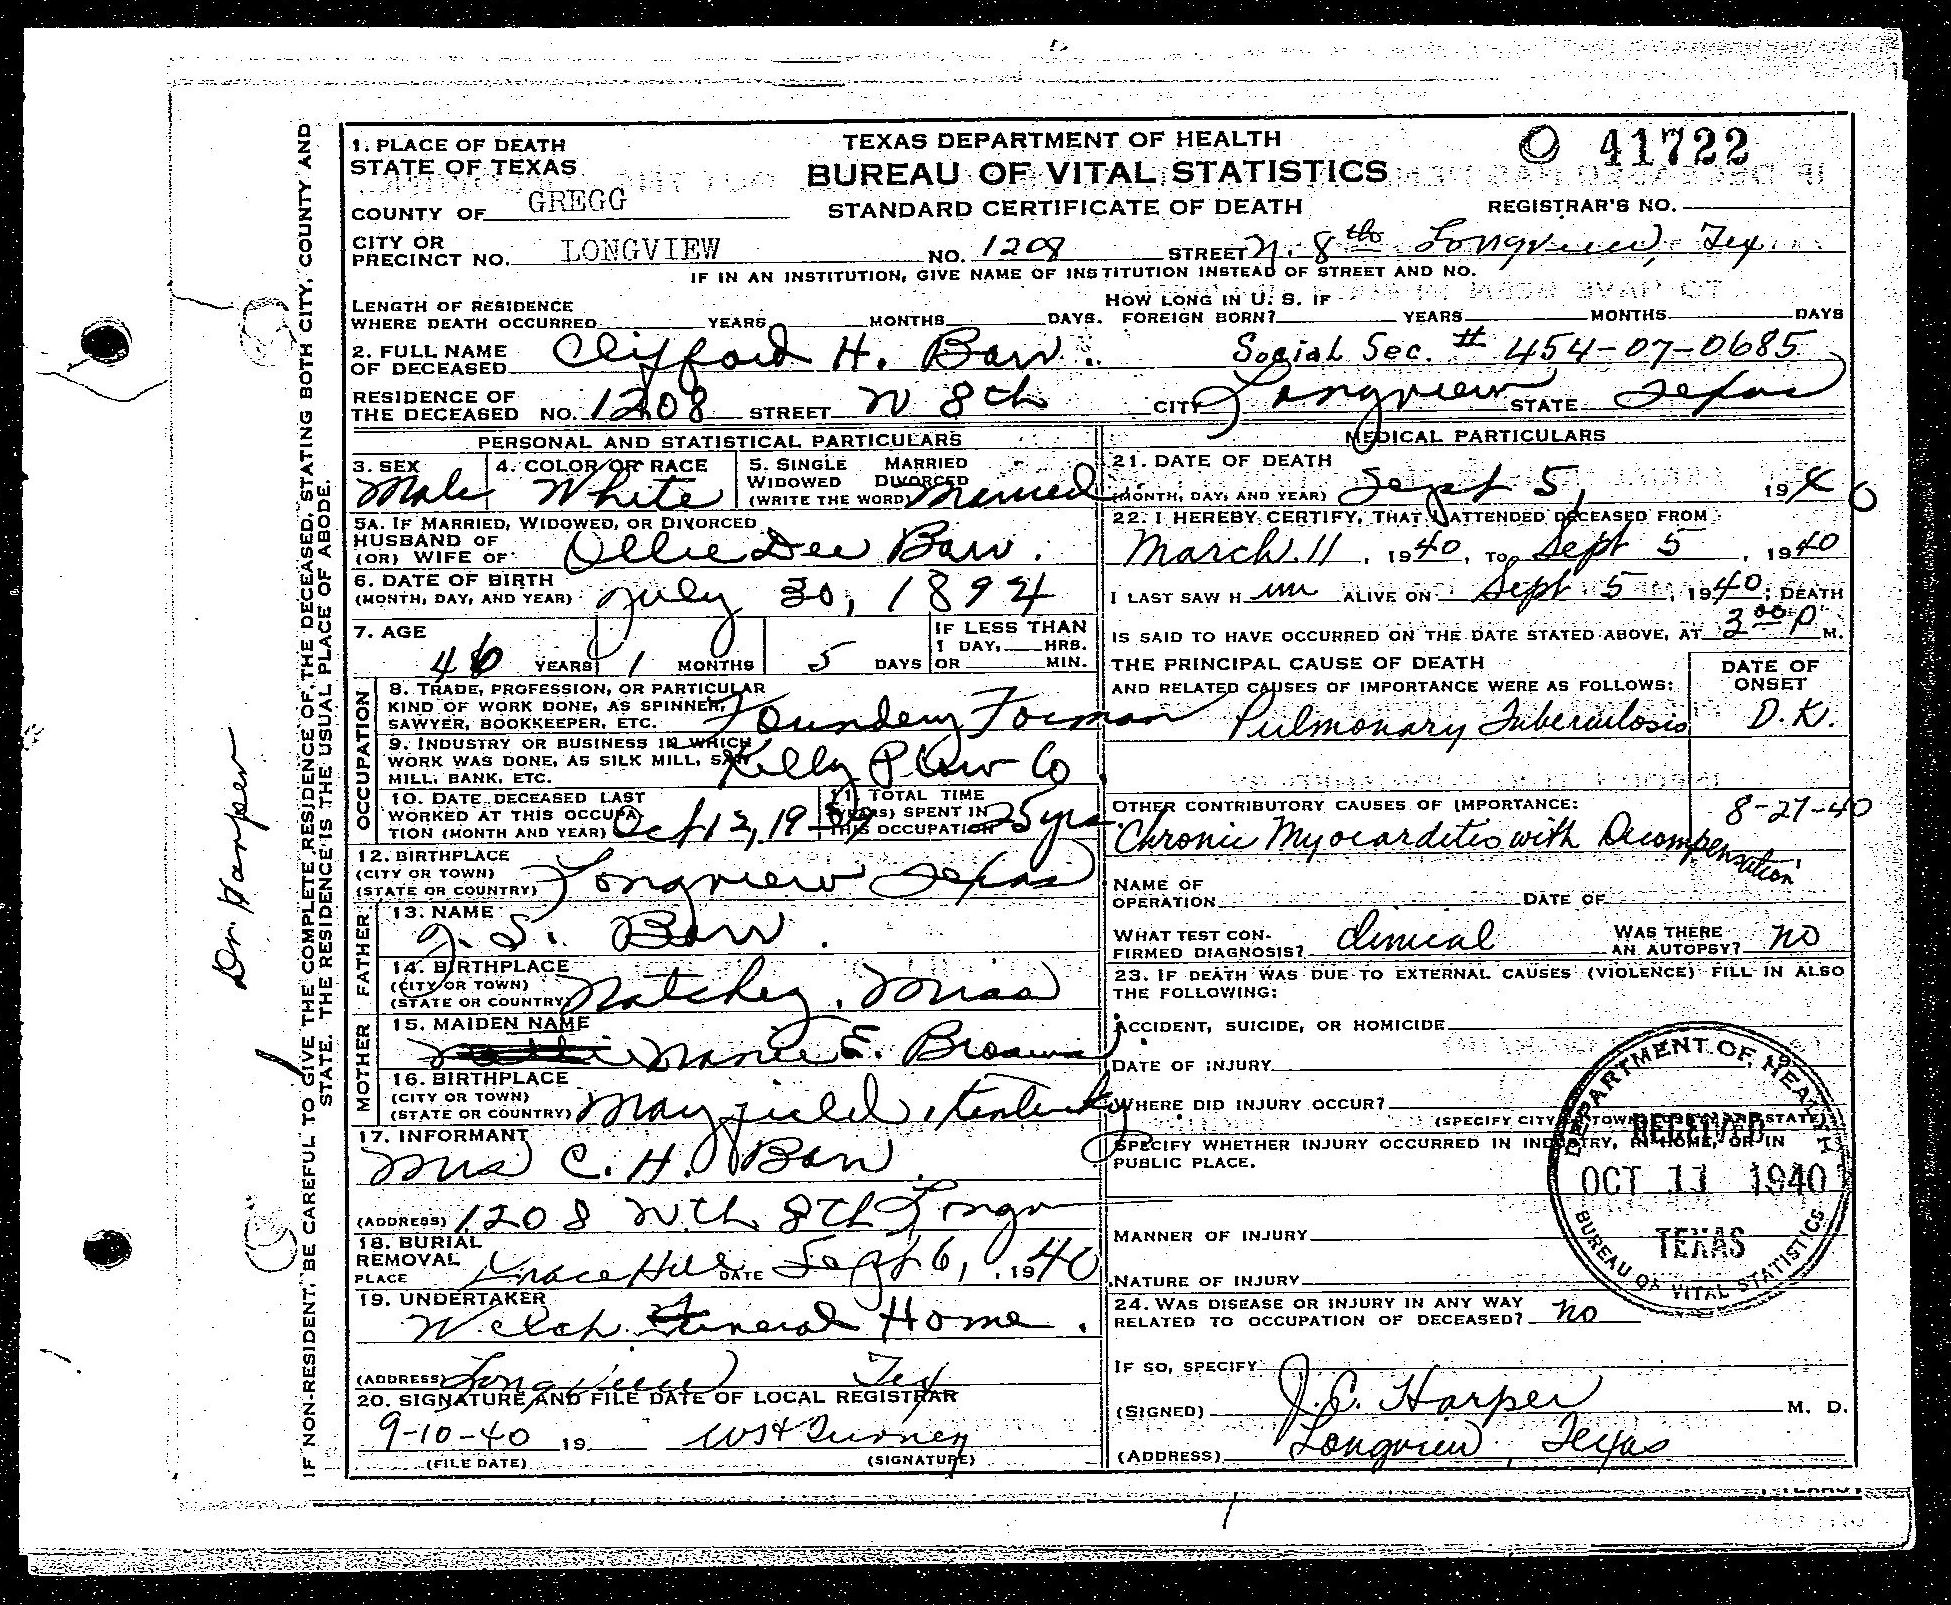 TEXAS DEPARTMENT OF HEALTH
BUREAU OF VITAL STATISTICS
STANDARD CERTIFICATE OF DEATH
O 41722
REGISTRAR'S NO.
1. PLACE OF DEATH
STATE OF TEXAS
COUNTY OF GREGG
CITY OR PRECINCT NO. LONGVIEW NO. 1208 STREET N. 8th Longview, Tex.
IF IN AN INSTITUTION, GIVE NAME OF INSTITUTION INSTEAD OF STREET AND NO.
LENGTH OF RESIDENCE WHERE DEATH OCCURRED YEARS MONTHS DAYS. HOW LONG IN U. S. IF FOREIGN BORN? YEARS MONTHS DAYS
2. FULL NAME OF DECEASED Clifford H. Barr. Social Sec. # 454-07-0685
RESIDENCE OF THE DECEASED NO. 1208 STREET N 8th CITY Longview STATE Texas
PERSONAL AND STATISTICAL PARTICULARS
3. SEX Male
4. COLOR OR RACE White
5. SINGLE MARRIED WIDOWED DIVORCED (WRITE THE WORD) Married
5A. IF MARRIED, WIDOWED, OR DIVORCED
HUSBAND OF (OR) WIFE OF Ollie Dee Barr.
6. DATE OF BIRTH (MONTH, DAY, AND YEAR) July 30, 1894
7. AGE 46 YEARS 1 MONTHS 5 DAYS IF LESS THAN 1 DAY, HRS. OR MIN.
OCCUPATION
8. TRADE, PROFESSION, OR PARTICULAR KIND OF WORK DONE, AS SPINNER, SAWYER, BOOKKEEPER, ETC. Foundery Forman
9. INDUSTRY OR BUSINESS IN WHICH WORK WAS DONE, AS SILK MILL, SAW MILL, BANK, ETC. Kelly Plow Co.
10. DATE DECEASED LAST WORKED AT THIS OCCUPATION (MONTH AND YEAR) Oct 12, 19
11. TOTAL TIME (YEARS) SPENT IN THIS OCCUPATION 25 yrs.
12. BIRTHPLACE (CITY OR TOWN) (STATE OR COUNTRY) Longview Texas
FATHER
13. NAME J. S. Barr.
14. BIRTHPLACE (CITY OR TOWN) (STATE OR COUNTRY) Natchez, Miss
MOTHER
15. MAIDEN NAME Nannie E. Brown
16. BIRTHPLACE (CITY OR TOWN) (STATE OR COUNTRY) Mayfield, Kentucky
17. INFORMANT Mrs C. H. Barr.
(ADDRESS) 1208 Nth 8th Longv
18. BURIAL REMOVAL PLACE Grace Hill DATE Sept 6, 1940
19. UNDERTAKER Welch Funeral Home.
(ADDRESS) Longview Tex
20. SIGNATURE AND FILE DATE OF LOCAL REGISTRAR
9-10-40 19
(FILE DATE) (SIGNATURE)
MEDICAL PARTICULARS
21. DATE OF DEATH (MONTH, DAY, AND YEAR) Sept 5, 1940
22. I HEREBY CERTIFY, THAT I ATTENDED DECEASED FROM
March 11, 1940, TO Sept 5, 1940
I LAST SAW H im ALIVE ON Sept 5, 1940; DEATH
IS SAID TO HAVE OCCURRED ON THE DATE STATED ABOVE, AT 3:00 P M.
THE PRINCIPAL CAUSE OF DEATH AND RELATED CAUSES OF IMPORTANCE WERE AS FOLLOWS:
DATE OF ONSET
Pulmonary Tuberculosis D.K.
OTHER CONTRIBUTORY CAUSES OF IMPORTANCE:
Chronic Myocarditis with Decompensation 8-27-40
NAME OF OPERATION DATE OF
WHAT TEST CONFIRMED DIAGNOSIS? Clinical WAS THERE AN AUTOPSY? no
23. IF DEATH WAS DUE TO EXTERNAL CAUSES (VIOLENCE) FILL IN ALSO THE FOLLOWING:
ACCIDENT, SUICIDE, OR HOMICIDE
DATE OF INJURY
WHERE DID INJURY OCCUR?
(SPECIFY CITY, TOWN STATE)
SPECIFY WHETHER INJURY OCCURRED IN INDUSTRY, IN HOME, OR IN PUBLIC PLACE.
MANNER OF INJURY
NATURE OF INJURY
24. WAS DISEASE OR INJURY IN ANY WAY RELATED TO OCCUPATION OF DECEASED? no
IF SO, SPECIFY
(SIGNED) J. C. Harper M. D.
(ADDRESS) Longview, Texas
DEPARTMENT OF HEALTH
RECEIVED
OCT 11 1940
TEXAS
BUREAU OF VITAL STATISTICS
IF NON-RESIDENT, BE CAREFUL TO GIVE THE COMPLETE RESIDENCE OF THE DECEASED, STATING BOTH CITY, COUNTY AND
STATE. THE RESIDENCE IS THE USUAL PLACE OF ABODE.
Dr. Harper